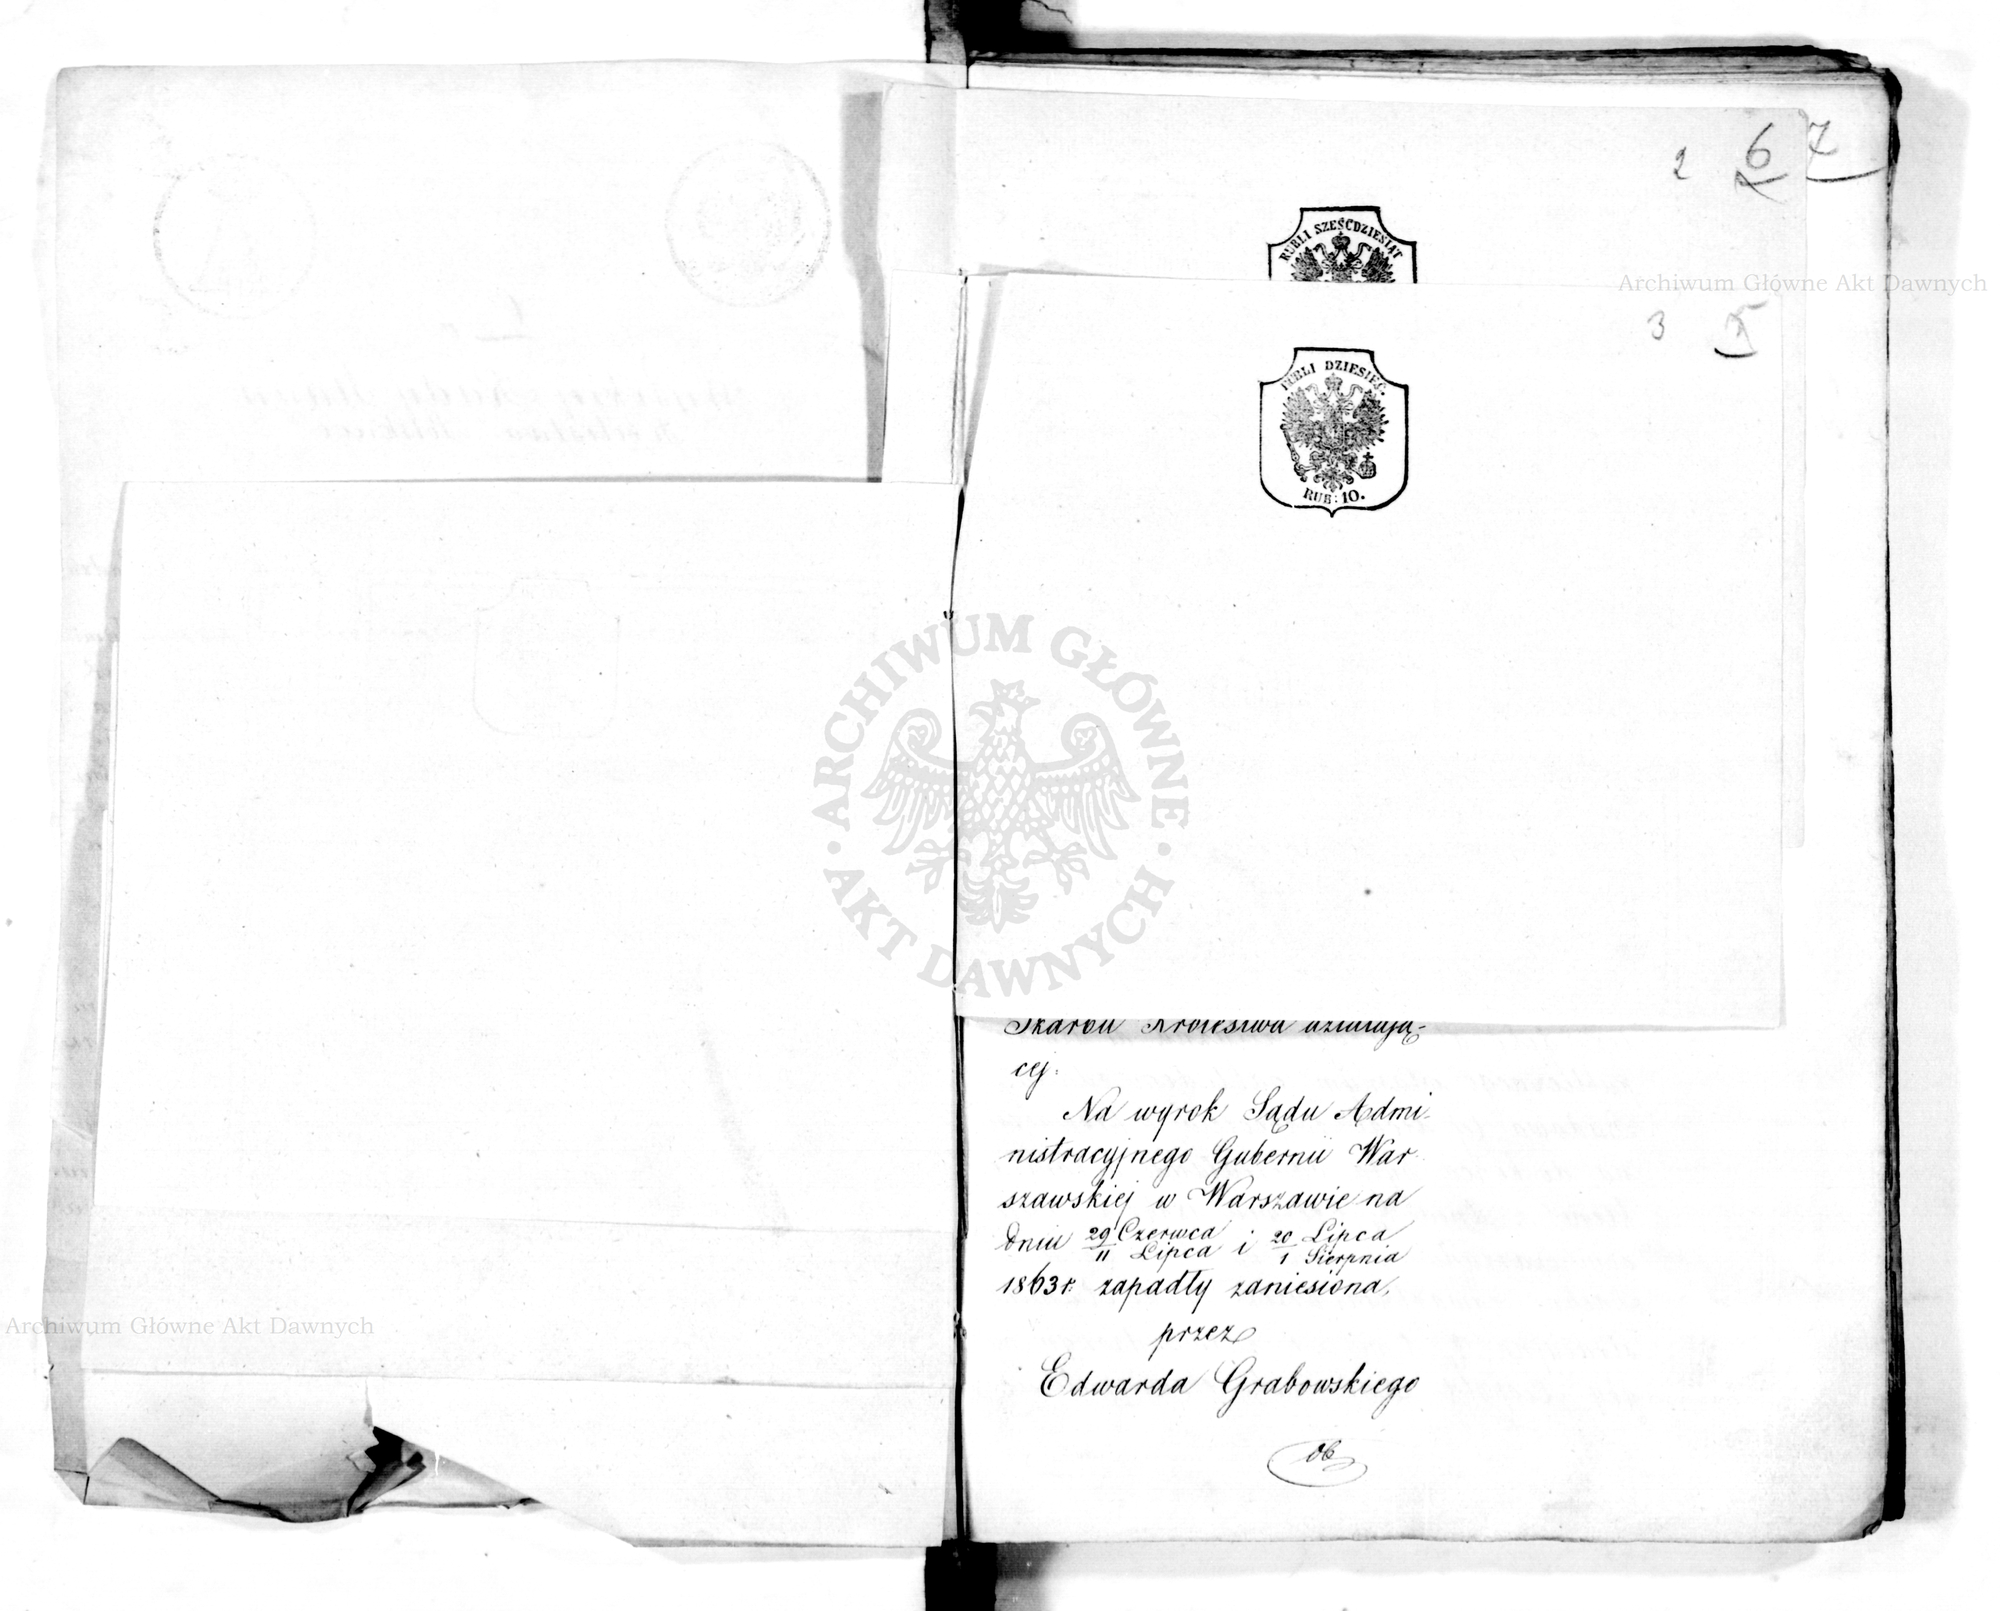 2 6 7
RUBLI SZEŚĆDZIESIĄT
Archiwum Główne Akt Dawnych
3 5
RUBLI DZIESIĘĆ.
RUB: 10.
ARCHIWUM GŁÓWNE
AKT DAWNYCH
Skarbu Królestwa działają-
cej.
Na wyrok Sądu Admi-
nistracyjnego Gubernii War-
szawskiej w Warszawie na
dniu 29 Czerwca / 11 Lipca i 20 Lipca / 1 Sierpnia
1863 r. zapadły zaniesiona,
przez
Edwarda Grabowskiego
Archiwum Główne Akt Dawnych